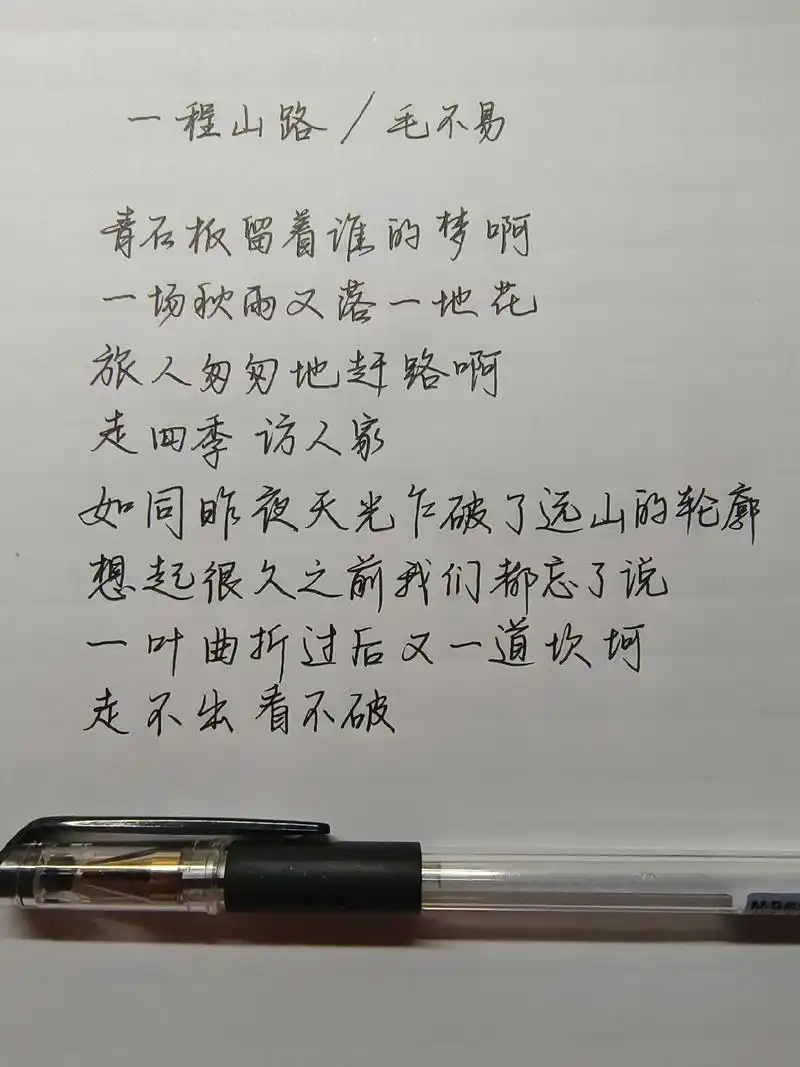 一程山路/毛不易
青石板留着谁的梦啊
一场秋雨又落一地花
旅人匆匆地赶路啊
走四季 访人家
如同昨夜天光乍破了远山的轮廓
想起很久之前我们都忘了说
一叶曲折过后又一道坎坷
走不出 看不破